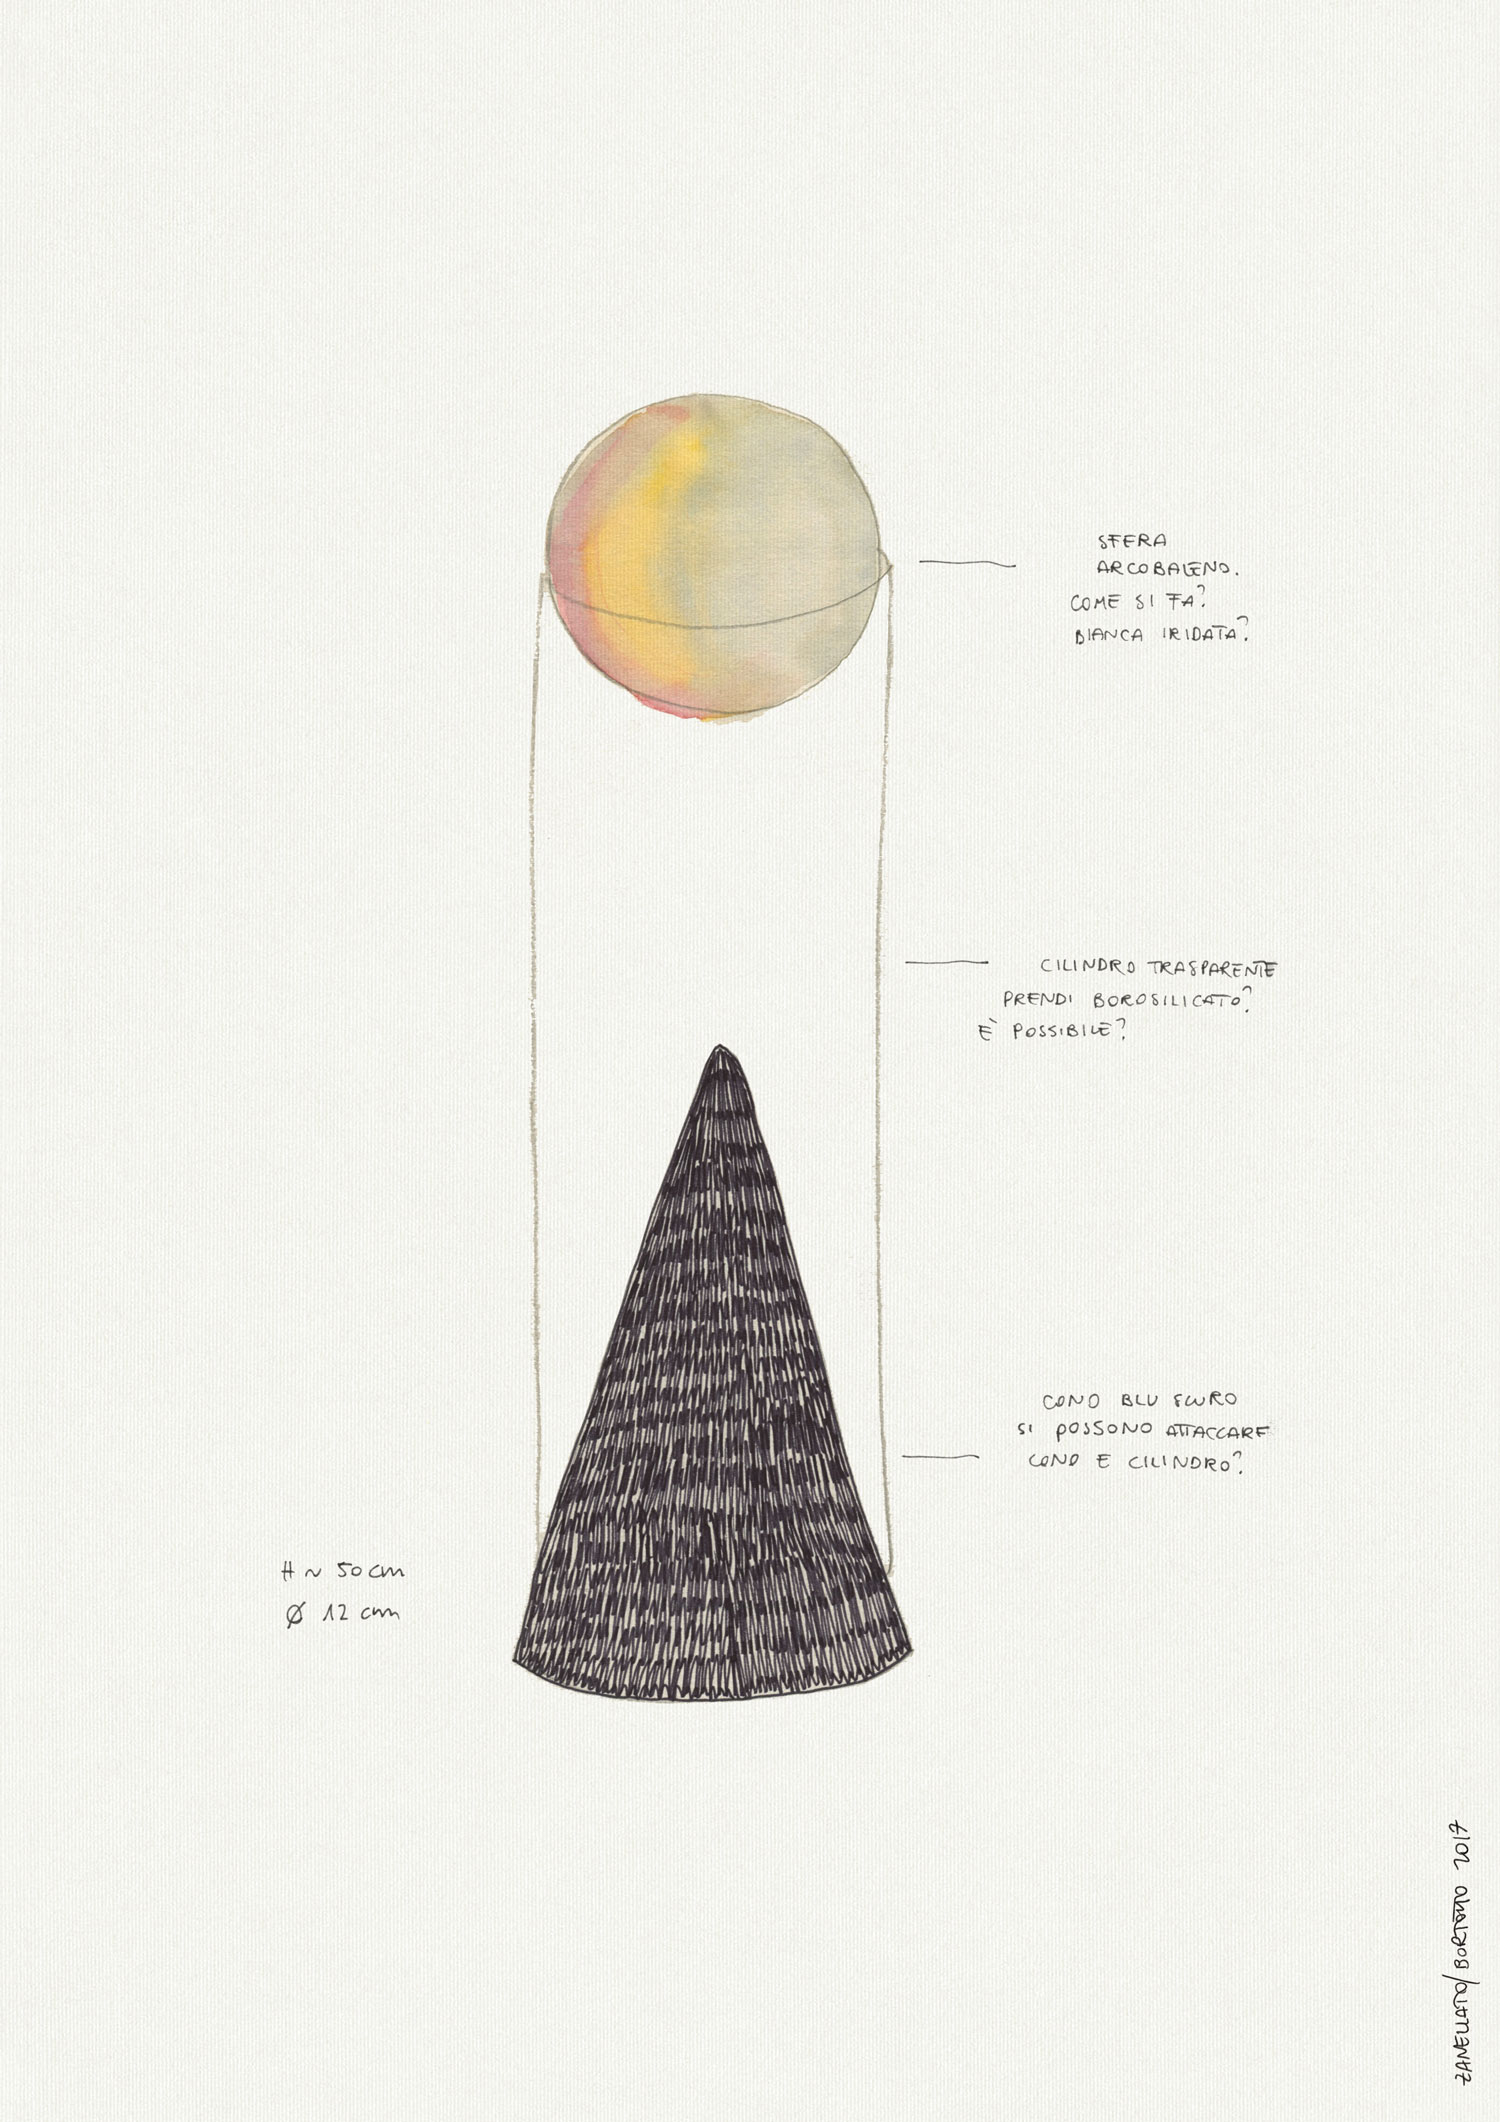 SFERA
ARCOBALENO.
COME SI FA?
BIANCA IRIDATA?
CILINDRO TRASPARENTE
PRENDI BOROSILICATO?
È POSSIBILE?
CONO BLU SCURO
SI POSSONO ATTACCARE
CONO E CILINDRO?
H ~ 50 cm
Ø 12 cm
ZANELLATO/BORTOTTO 2017